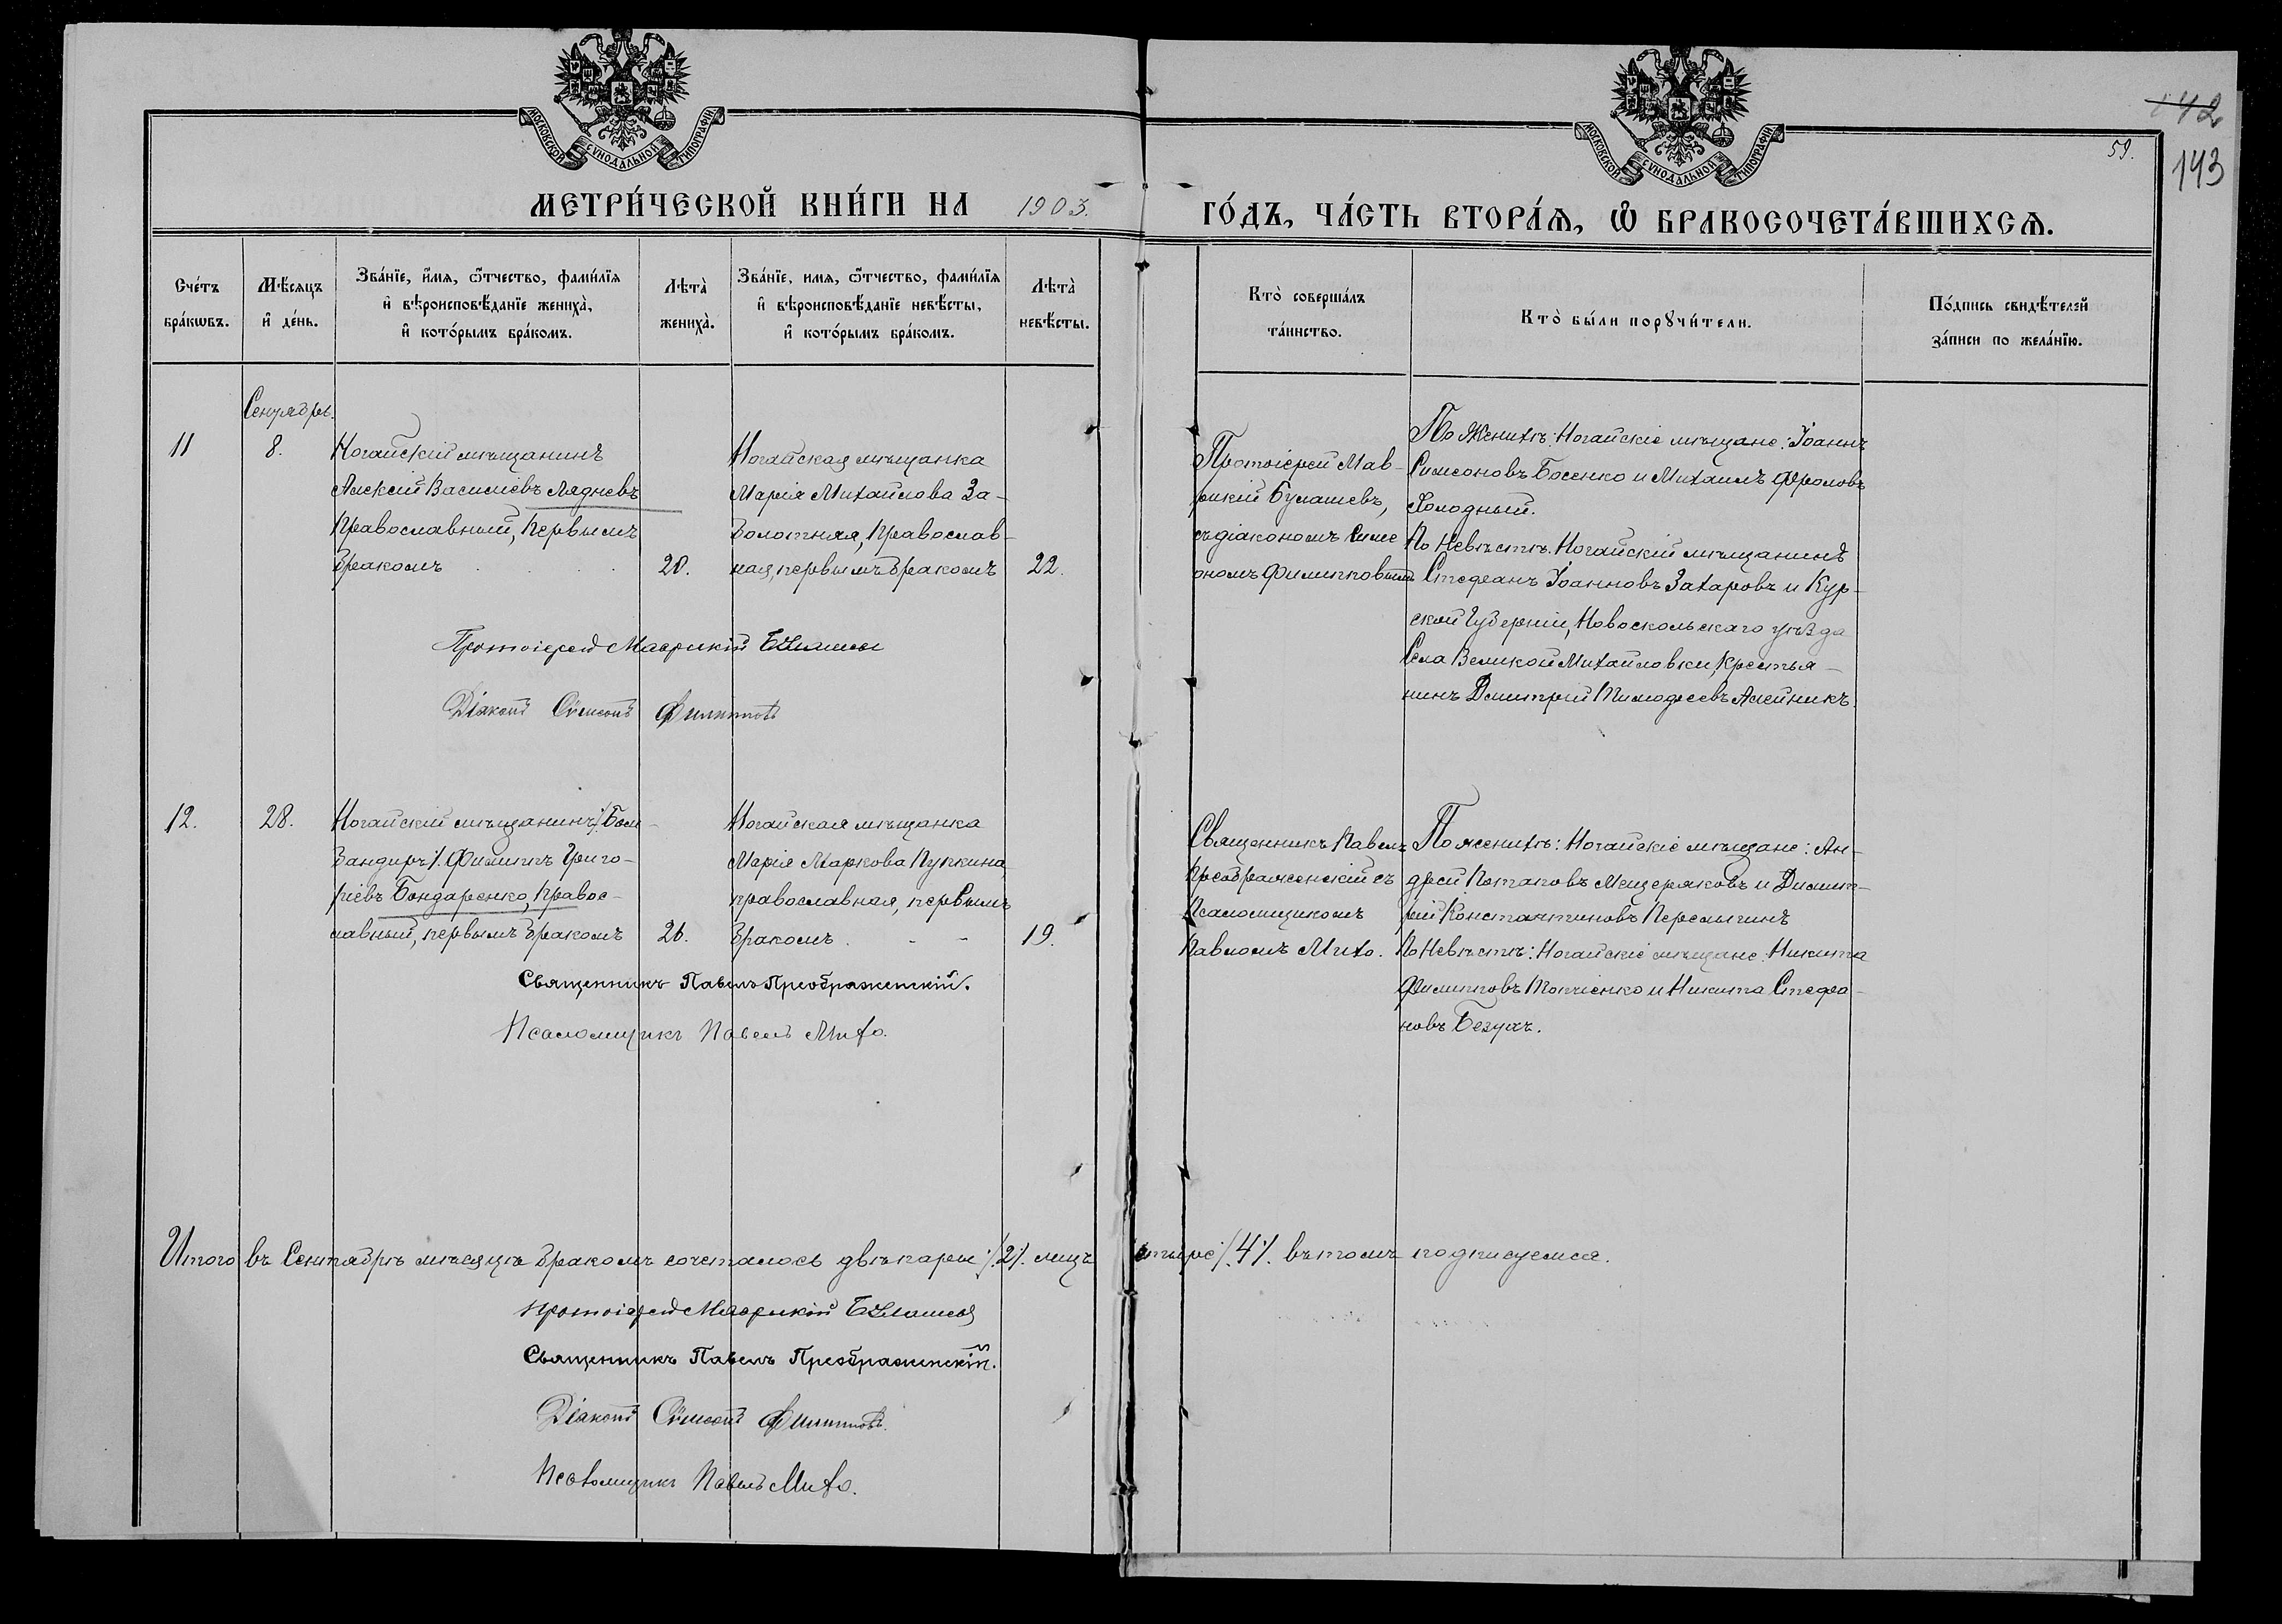 МОСКОВСКОЙ СѴНОДАЛЬНОЙ ТИПОГРАФІИ
МОСКОВСКОЙ СѴНОДАЛЬНОЙ ТИПОГРАФІИ
142
59.
143
МЕТРИ́ЧЕСКОЙ КНИ́ГИ НА 1903.
ГО́ДЪ, ЧА́СТЬ ВТОРА́Ѧ, Ѡ҆ БРАКОСОЧЕТА́ВШИХСѦ.
Сче́тъ
бра́кѡвъ.
Мѣ́сяцъ
и҆ де́нь.
Зва́нїе, и҆́мя, ѻ҆́тчество, фами́лїя
и҆ вѣроисповѣ́данїе жениха̀,
и҆ кото́рымъ бра́комъ.
Лѣта̀
жениха̀.
Зва́нїе, имя, ѻ҆́тчество, фами́лїя
и҆ вѣроисповѣ́данїе невѣ́сты,
и҆ кото́рымъ бра́комъ.
Лѣта̀
невѣ́сты.
Кто̀ соверша́лъ
та́инство.
Кто̀ бы́ли порꙋчи́тели.
По́дпись свидѣ́телей
за́писи по жела́нїю.
Сентябрь.
11
8.
Ногайскій мѣщанинъ
Алексій Василіевъ Лядневъ
Православный, первымъ
бракомъ
20.
Ногайская мѣщанка
Марія Михайлова За-
болотная, Православ-
ная, первымъ бракомъ
22.
Протоіерей Мав-
рикій Булашевъ,
съ діакономъ Симе
ономъ Филипповымъ
По Женихѣ: Ногайскіе мѣщане: Іоаннъ
Симеоновъ Босенко и Михаилъ Фроловъ
Холодный.
По Невѣстѣ. Ногайскій мѣщанинъ
Стефанъ Іоанновъ Захаровъ и Кур-
ской Губерніи, Новоскольскаго уѣзда
Села Великой Михайловки, крестья-
нинъ Дмитрій Тимофеевъ Алейникъ.
Протоіерей Маврикій Булашевъ
Діаконъ Сѵмеонъ Филипповъ
12.
28.
Ногайскій мѣщанинъ /. Бом-
бандиръ /. Филиппъ Григо-
ріевъ Бондаренко, Правос-
лавный, первымъ бракомъ
26.
Ногайская мѣщанка
Марія Маркова Пупкина
православная, первымъ
бракомъ . - -
19.
Священникъ Павелъ
Преображенскій съ
Псаломщикомъ
Павломъ Михо.
По женихѣ: Ногайскіе мѣщане: Ан-
дрей Потаповъ Мещеряковъ и Димит-
рій Константиновъ Пересыпинъ
По Невѣстѣ: Ногайскіе мѣщане: Никита
Филипповъ Топчіенко и Никита Стефа-
новъ Безухъ.
Священникъ Павелъ Преображенскій.
Псаломщикъ Павелъ Михо.
Итого въ Сентябрѣ мѣсяцѣ бракомъ сочеталось двѣ пары /. 2 /. лицъ четыре /. 4 /. въ томъ подписуемся.
Протоіерей Маврикій Булашевъ
Священникъ Павелъ Преображенскій.
Діаконъ Сѵмеонъ Филипповъ.
Псаломщикъ Павелъ Михо.